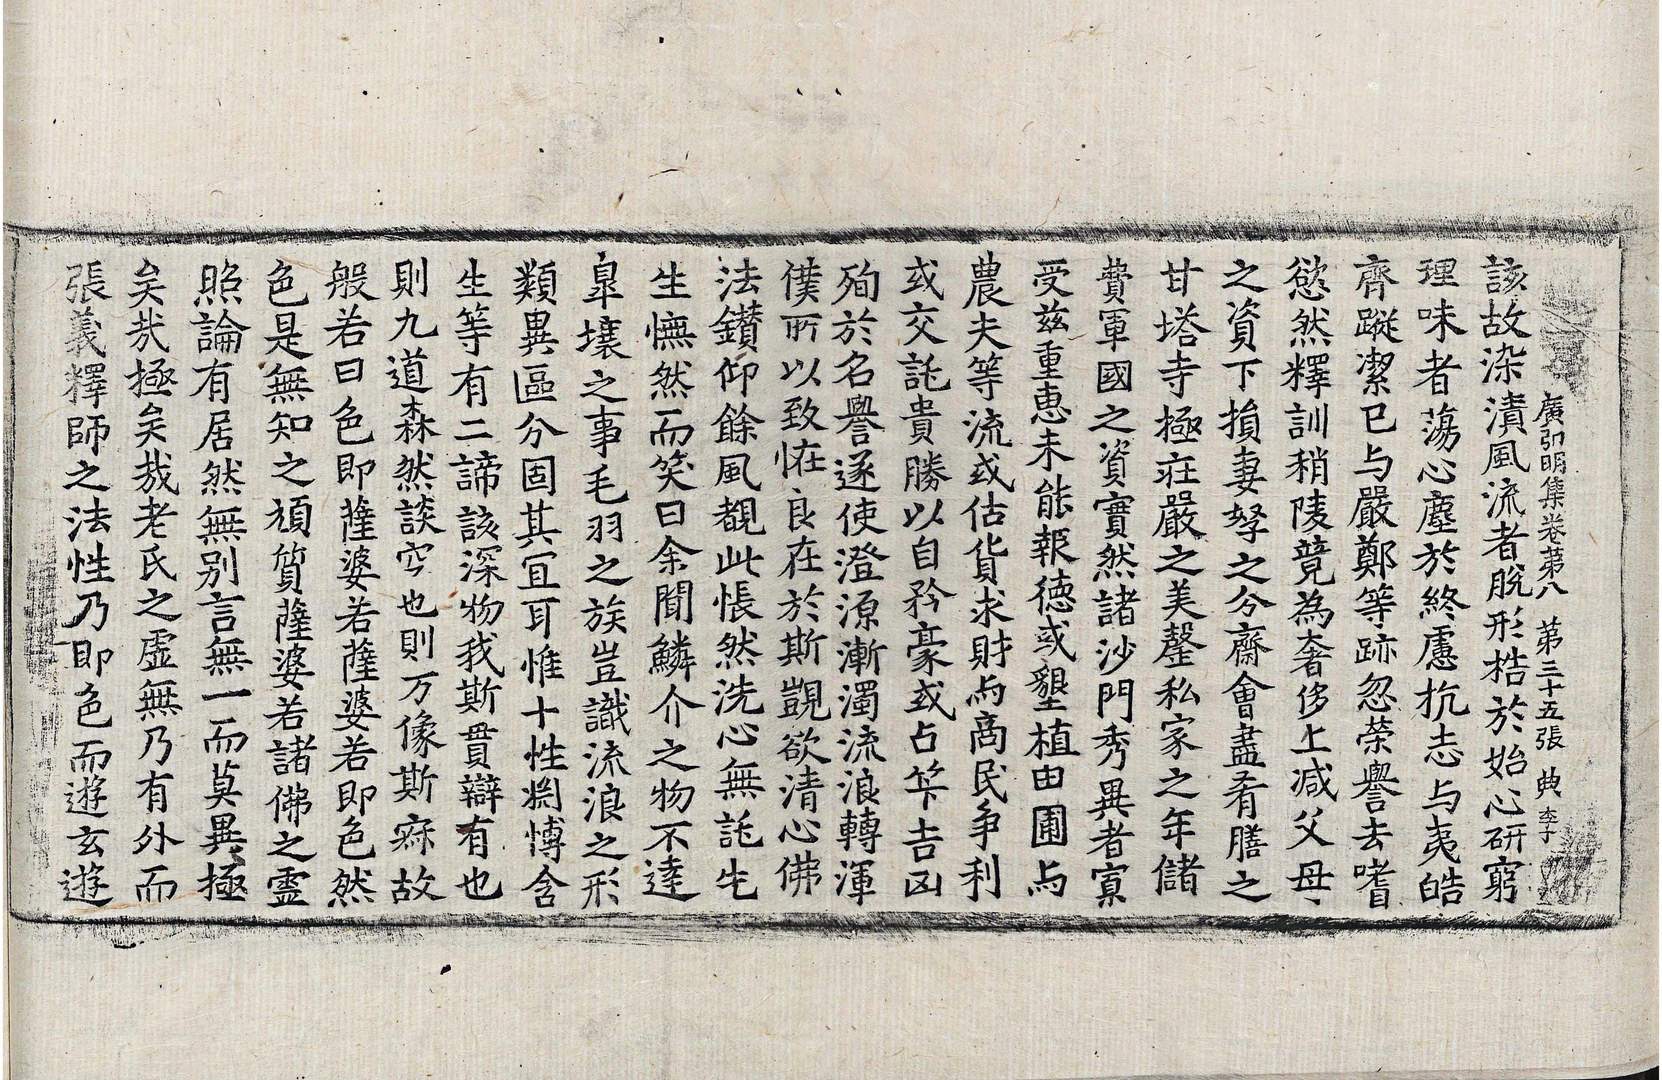 廣弘明集卷第八 第三十五張 典 李子
該故染漬風流者脫形梏於始心研窮
理味者蕩心塵於終慮抗志与夷皓
齊蹤潔已与嚴鄭等跡忽榮譽去嗜
慾然釋訓稍陵竟為奢侈上减父母
之資下損妻孥之分齋會盡肴膳之
甘塔寺極莊嚴之美罄私家之年儲
費軍國之資實然諸沙門秀異者寡
受茲重惠未能報德或墾植田圃与
農夫等流或估貨求財与商民争利
或交託貴勝以自矜豪或占筭吉凶
殉於名譽遂使澄源漸濁流浪轉渾
僕所以致恠良在於斯覬欲清心佛
法鑽仰餘風覩此悵然洗心無託先
生憮然而笑曰余聞鱗介之物不達
皐壤之事毛羽之族豈識流浪之形
類異區分固其宜耳惟十性淵愽含
生等有二諦該深物我斯貫辯有也
則九道森然談空也則万像斯寂故
般若曰色即薩婆若薩婆若即色然
色是無知之頑質薩婆若諸佛之靈
照論有居然無別言無一而莫異極
矣㢤極矣㢤老氏之虛無乃有外而
張義釋師之法性乃即色而遊玄遊